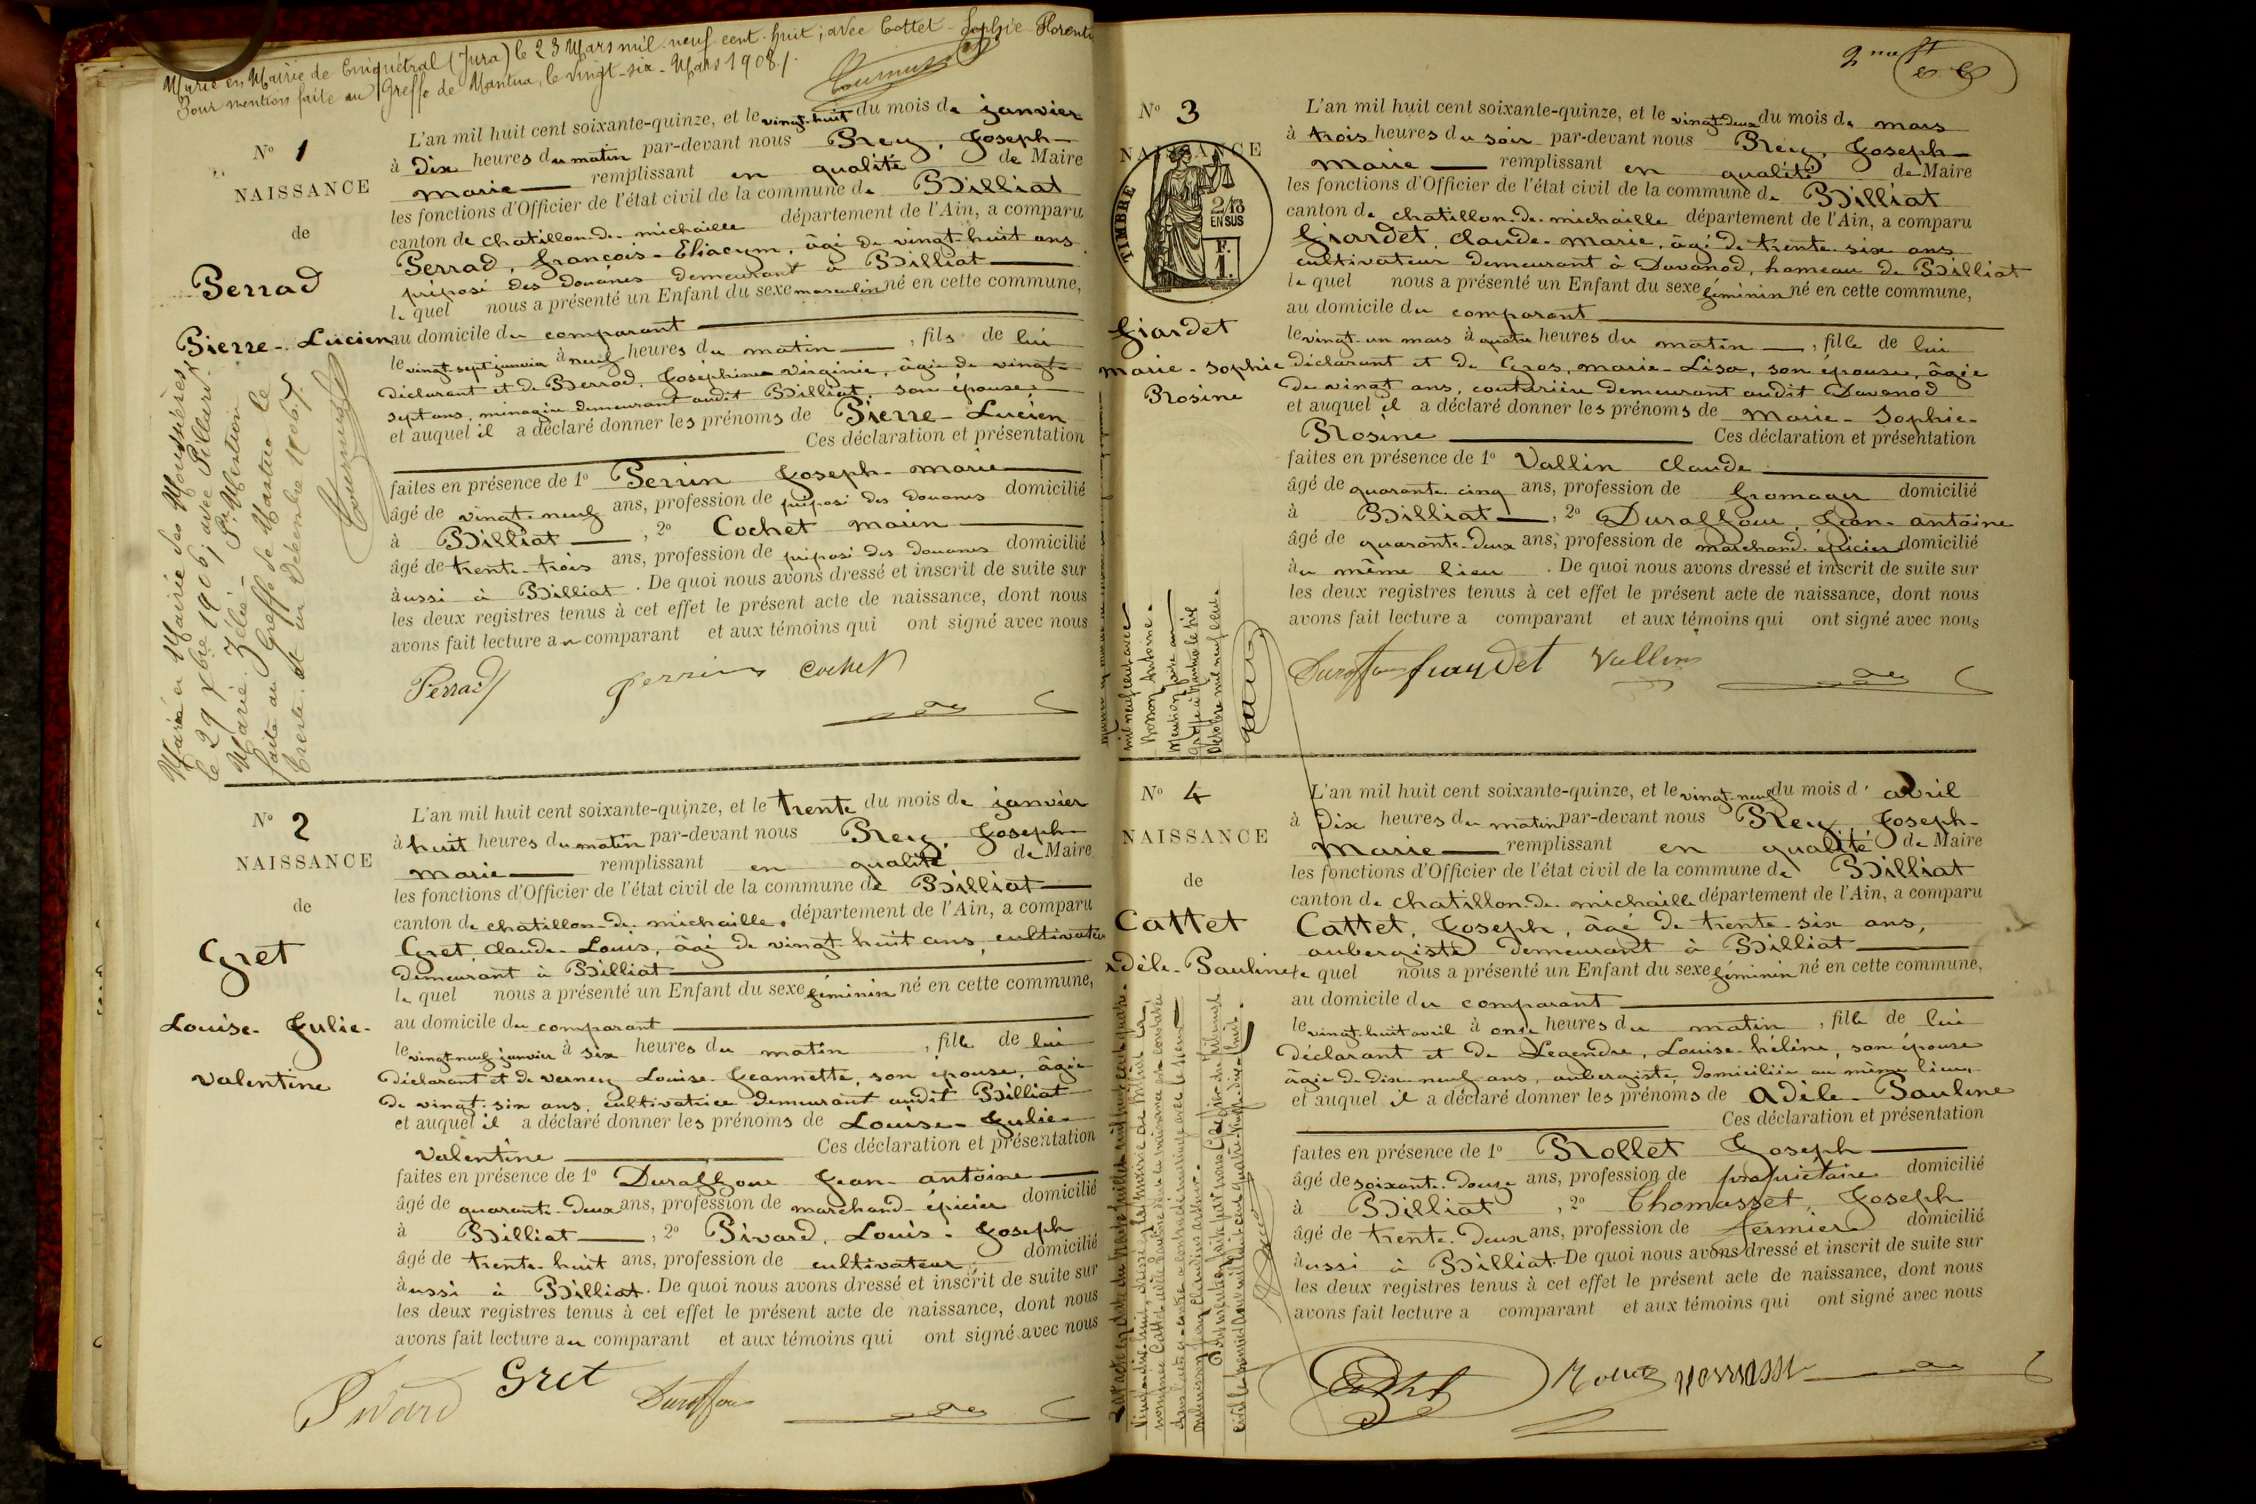 Marié en Mairie de Cinquétral (Jura) le 23 Mars mil neuf cent huit; avec Cottet Sophie Florent
Pour mention faite au Greffe de Nantua, le vingt-six Mars 1908./.
Nº 1
NAISSANCE
de
Perrad
Pierre-Lucien
Marié en Mairie des Moussières
le 29 Xbre 1906; avec Pillard
Marie Zélée. Pr Mention
faite au Greffe de Nantua le
trente et un Décembre 1906./.
L'an mil huit cent soixante-quinze, et le vingt-huit du mois de janvier
à dix heures du matin par-devant nous Rey, Joseph-
Marie remplissant en qualité de Maire
les fonctions d'Officier de l'état civil de la commune de Billiat
canton de chatillon-de-michaille département de l'Ain, a comparu
Perrad, François-Eliacym, âgé de vingt-huit ans
préposé des douanes demeurant à Billiat
lequel nous a présenté un Enfant du sexe masculin né en cette commune,
au domicile du comparant
le vingt-sept janvier à neuf heures du matin, fils de lui
déclarant et de Berrod, Josephine Virginie, âgée de vingt-
sept ans, ménagère demeurant audit Billiat, son épouse;
et auquel il a déclaré donner les prénoms de Pierre-Lucien
Ces déclaration et présentation
faites en présence de 1º Perrin Joseph-marie
âgé de vingt-neuf ans, profession de préposé des douanes domicilié
à Billiat, 2º Cochet marin
âgé de trente-trois ans, profession de préposé des douanes domicilié
aussi à Billiat. De quoi nous avons dressé et inscrit de suite sur
les deux registres tenus à cet effet le présent acte de naissance, dont nous
avons fait lecture au comparant et aux témoins qui ont signé avec nous
Perrad Perrin Cochet
Nº 2
NAISSANCE
de
Gret
Louise-Julie-
Valentine
L'an mil huit cent soixante-quinze, et le trente du mois de janvier
à huit heures du matin par-devant nous Rey, Joseph-
Marie remplissant en qualité de Maire
les fonctions d'Officier de l'état civil de la commune de Billiat
canton de chatillon-de-michaille, département de l'Ain, a comparu
Gret, Claude-Louis, âgé de vingt-huit ans, cultivateur
demeurant à Billiat
lequel nous a présenté un Enfant du sexe féminin né en cette commune,
au domicile du comparant
le vingt-neuf janvier à six heures du matin, fille de lui
déclarant et de Verney Louise-Jeannette, son épouse, âgée
de vingt-six ans, cultivatrice demeurant audit Billiat
et auquel il a déclaré donner les prénoms de Louise-Julie-
Valentine Ces déclaration et présentation
faites en présence de 1º Duraffour Jean-antoine
âgé de quarante-deux ans, profession de marchand-épicier domicilié
à Billiat, 2º Pivard, Louis-Joseph
âgé de trente-huit ans, profession de cultivateur domicilié
aussi à Billiat. De quoi nous avons dressé et inscrit de suite sur
les deux registres tenus à cet effet le présent acte de naissance, dont nous
avons fait lecture au comparant et aux témoins qui ont signé avec nous
Pivard Gret Duraffour
Nº 3
NAISSANCE
TIMBRE
2/10
EN SUS
F.
1.
Girardet
Marie-Sophie
Rosine
mil neuf cent avec
Antoine.
Mention faite au
greffe à Nantua le
Octobre mil neuf cent
L'an mil huit cent soixante-quinze, et le vingt-deux du mois de mars
à trois heures du soir par-devant nous Rey, Joseph-
Marie remplissant en qualité de Maire
les fonctions d'Officier de l'état civil de la commune de Billiat
canton de chatillon-de-michaille département de l'Ain, a comparu
Girardet, claude-marie, âgé de trente-six ans
cultivateur demeurant à Davanod, hameau de Billiat
lequel nous a présenté un Enfant du sexe féminin né en cette commune,
au domicile du comparant
le vingt-un mars à quatre heures du matin, fille de lui
déclarant et de Gros, marie-Lisa, son épouse, âgée
de vingt ans, couturière demeurant audit Davanod
et auquel il a déclaré donner les prénoms de Marie-Sophie-
Rosine Ces déclaration et présentation
faites en présence de 1º Vallin claude
âgé de quarante-cinq ans, profession de fromager domicilié
à Billiat, 2º Duraffour, Jean-antoine
âgé de quarante-deux ans, profession de marchand-épicier domicilié
au même lieu. De quoi nous avons dressé et inscrit de suite sur
les deux registres tenus à cet effet le présent acte de naissance, dont nous
avons fait lecture a comparant et aux témoins qui ont signé avec nous
Duraffour Girardet Vallin
Nº 4
NAISSANCE
de
Cattet
Adèle-Pauline
L'an mil huit cent soixante-quinze, et le vingt-neuf du mois d'avril
à dix heures du matin par-devant nous Rey Joseph-
Marie remplissant en qualité de Maire
les fonctions d'Officier de l'état civil de la commune de Billiat
canton de chatillon-de-michaille département de l'Ain, a comparu
Cattet, Joseph, âgé de trente-six ans,
aubergiste demeurant à Billiat
lequel nous a présenté un Enfant du sexe féminin né en cette commune,
au domicile du comparant
le vingt-huit avril à onze heures du matin, fille de lui
déclarant et de Legendre, Louise-hélène, son épouse
âgée de dix-neuf ans, aubergiste, domiciliée au même lieu,
et auquel il a déclaré donner les prénoms de Adèle-Pauline
Ces déclaration et présentation
faites en présence de 1º Rollet Joseph
âgé de soixante-douze ans, profession de propriétaire domicilié
à Billiat, 2º Thomasset, Joseph
âgé de trente-deux ans, profession de fermier domicilié
aussi à Billiat. De quoi nous avons dressé et inscrit de suite sur
les deux registres tenus à cet effet le présent acte de naissance, dont nous
avons fait lecture a comparant et aux témoins qui ont signé avec nous